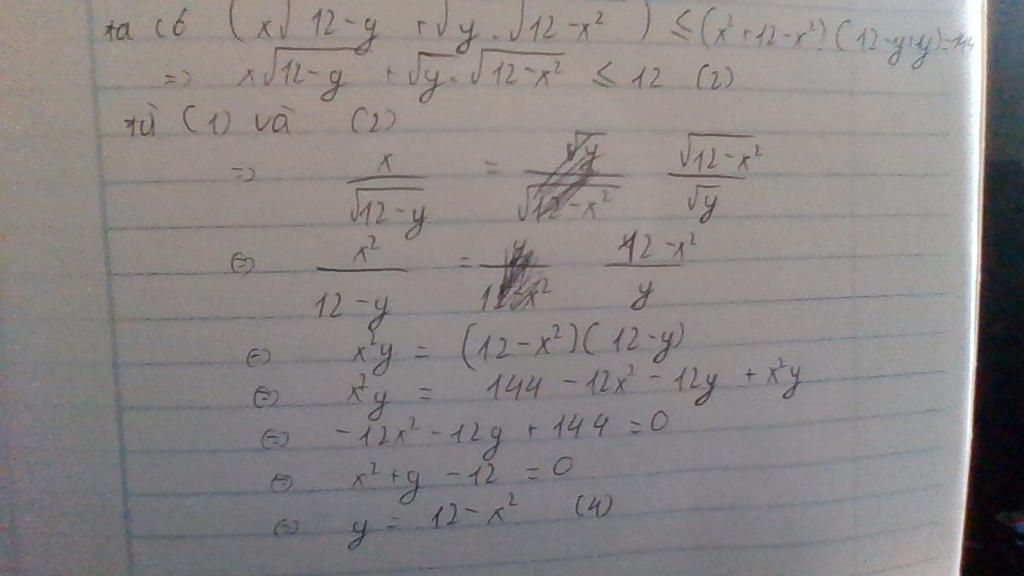 ta có (x√12-y + √y . √12-x²) ≤ (x²+12-x²)(12-y+y)=144
=> x√12-y + √y . √12-x² ≤ 12 (2)
từ (1) và (2)
=> x/√12-y = √12-x²/√y
⇔ x²/12-y = 12-x²/y
⇔ x²y = (12-x²)(12-y)
⇔ x²y = 144 - 12x² - 12y + x²y
⇔ -12x² - 12y + 144 = 0
⇔ x² + y - 12 = 0
⇔ y = 12 - x² (4)